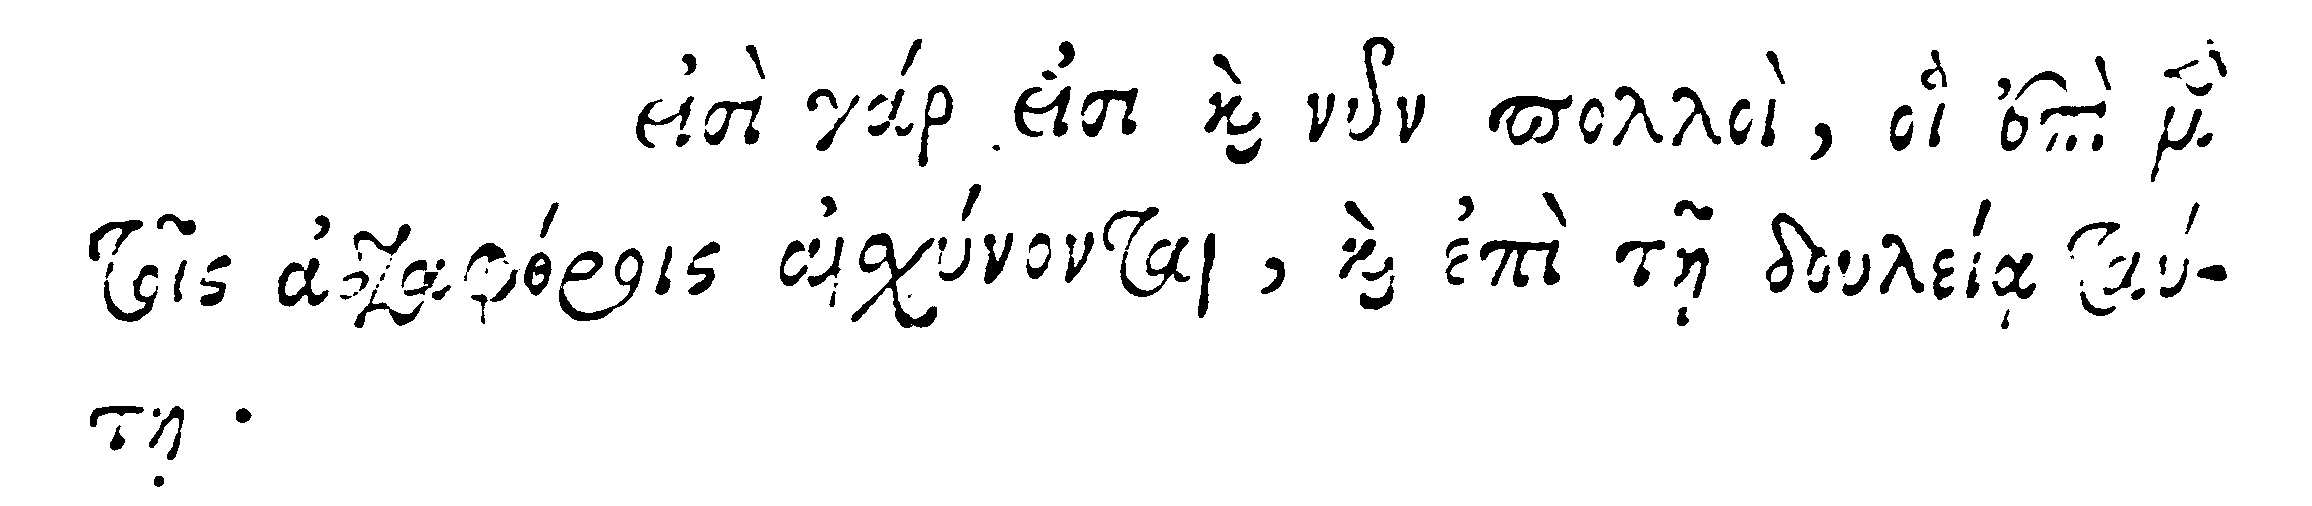 εἰσὶ γάρ εἰσι καὶ νῦν πολλοὶ, οἳ ἐπὶ μὲν
τοῖς ἀδιαφόροις αἰσχύνονται, καὶ ἐπὶ τῇ δουλείᾳ ταύ-
τῃ.